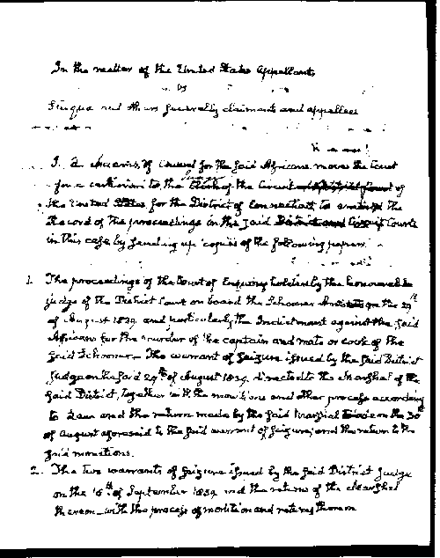 In the matter of the United States Appellants
vs
Cinque and others generally claimants and appellees
J. Q. Adams, of Counsel for the said Africans moves the Court
for a certiorari to the Clerk of the Circuit Court of
the United States for the District of Connecticut to the
Record of the proceedings in the said Circuit Courts
in this case by sending up copies of the following papers
1. The proceedings of the Court of Enquiry holden by the honourable
judge of the District Court on board the Schooner on the 29th
of August 1839 and particularly the Indictment against the said
Africans for the murder of the captain and mate or cook of the
said Schooner — The warrant of seizure issued by the said District
Judge on the said 29th of August 1839, directed to the Marshal of the
said District, together with the monitions and other process according
to Law and the return made by the said Marshal on the 30th
of August aforesaid to the said warrant of seizure, and the return to the
said monitions.
2. The two warrants of seizure issued by the said District Judge
on the of September 1839 and the returns of the Marshal
thereon — with the process of monition and returns thereon